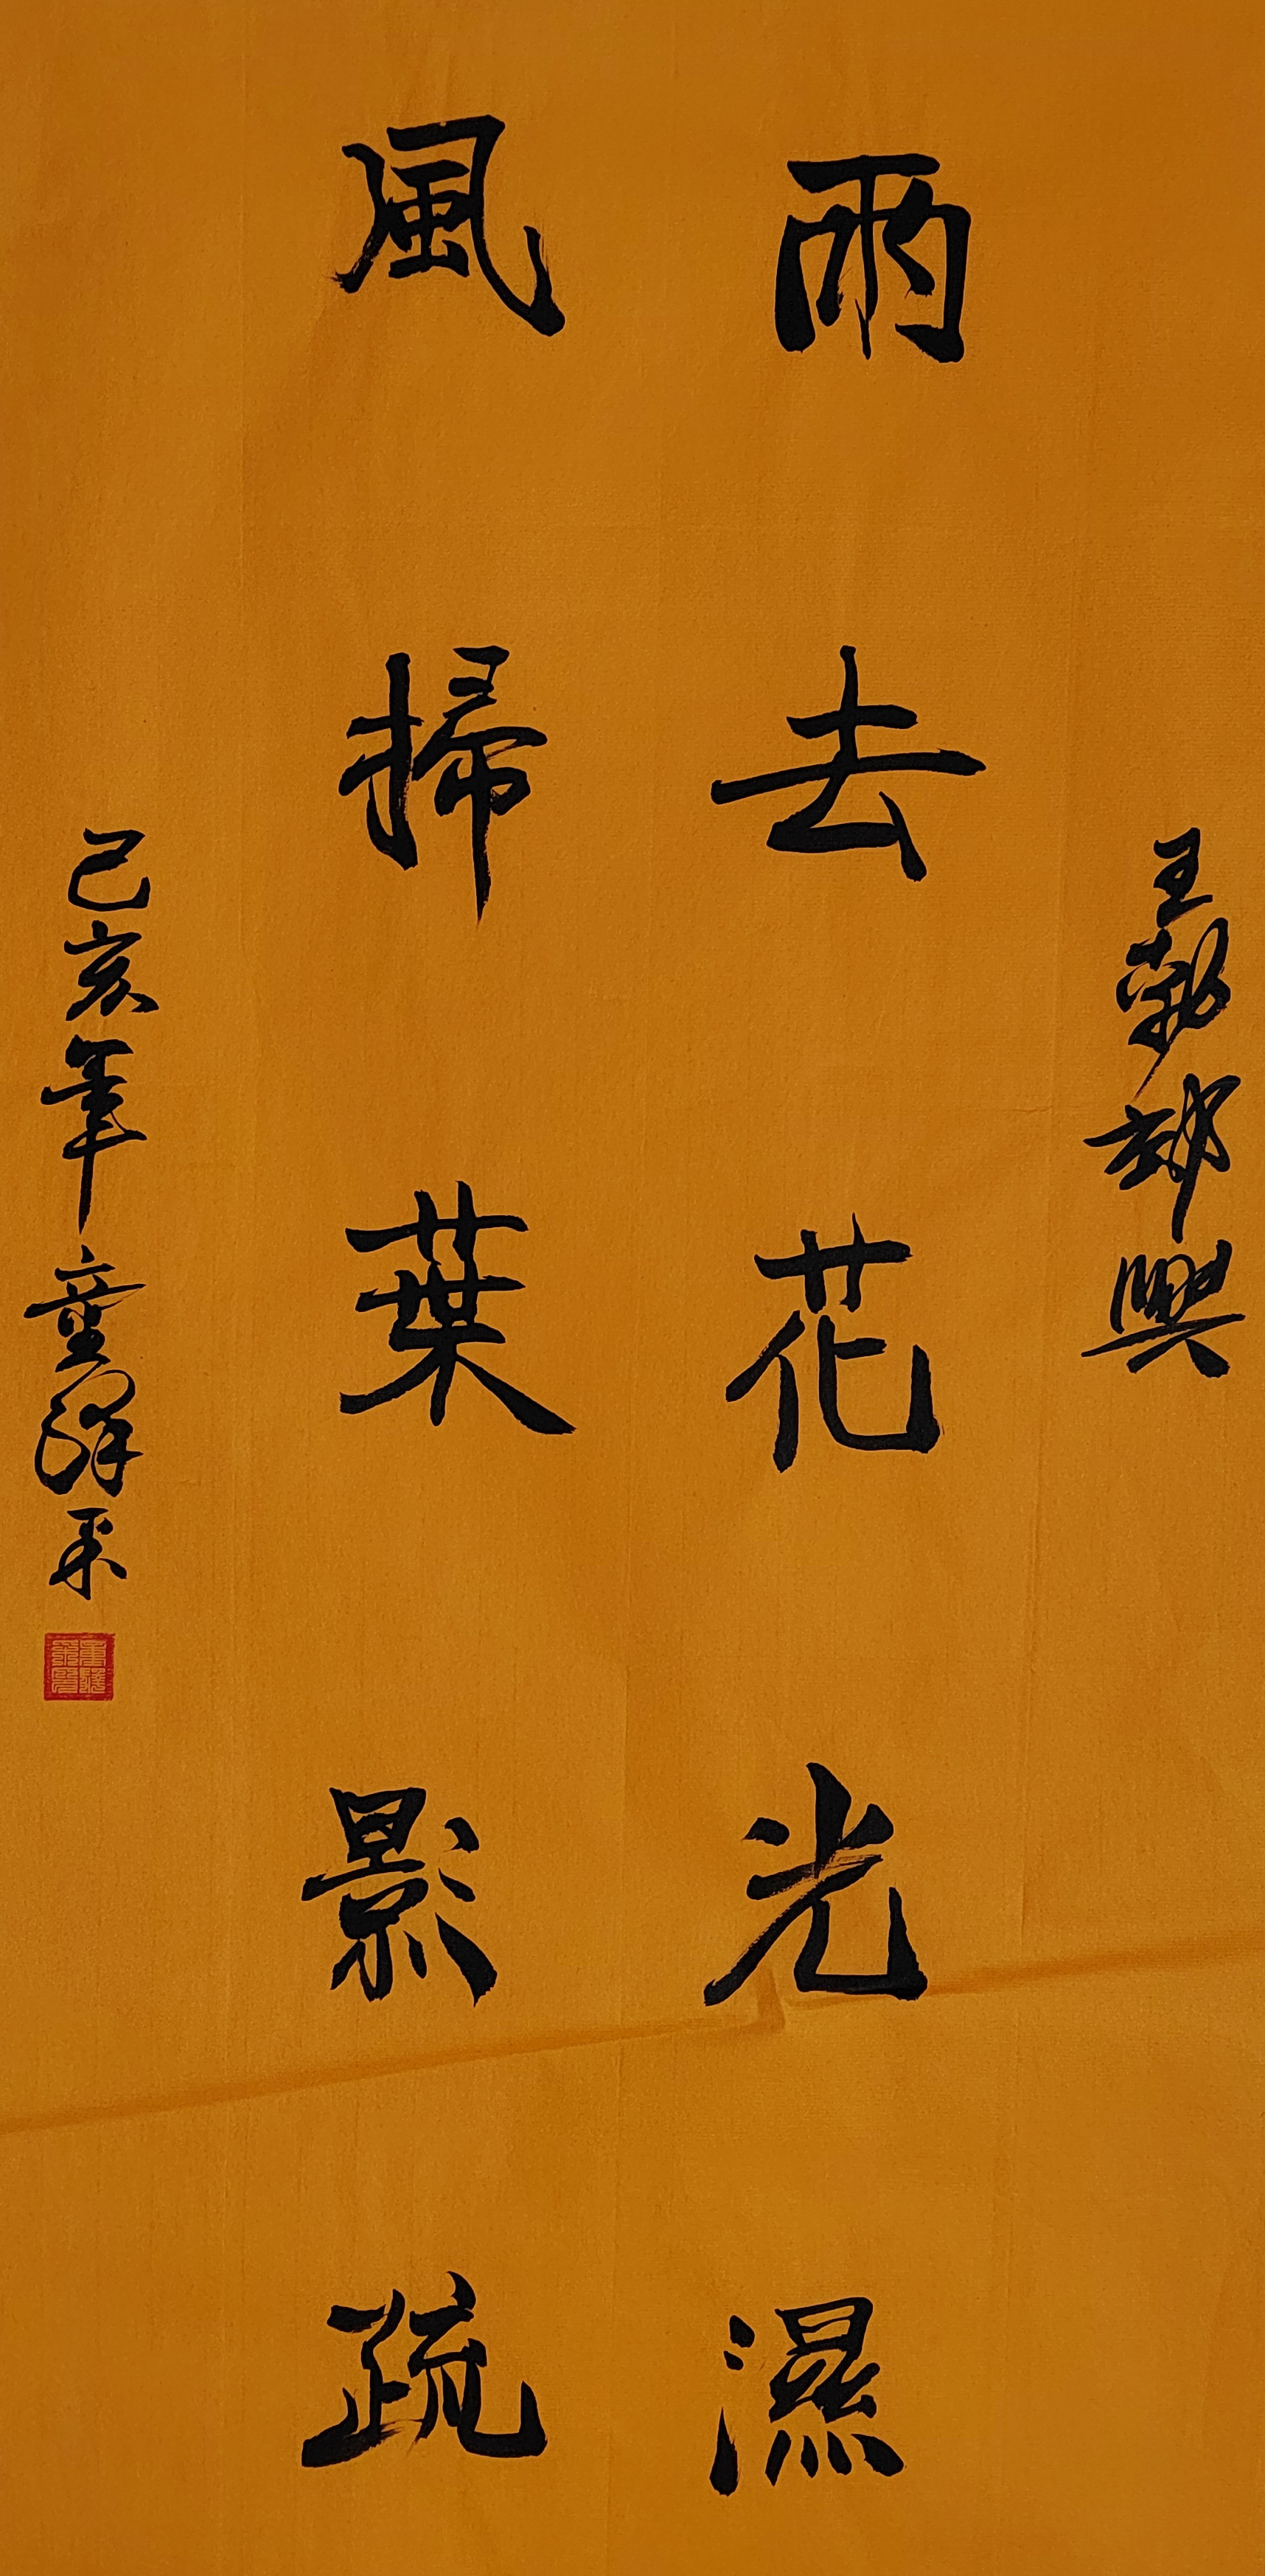 王勃郊興
雨去花光濕
風掃葉影疏
己亥年童繹平